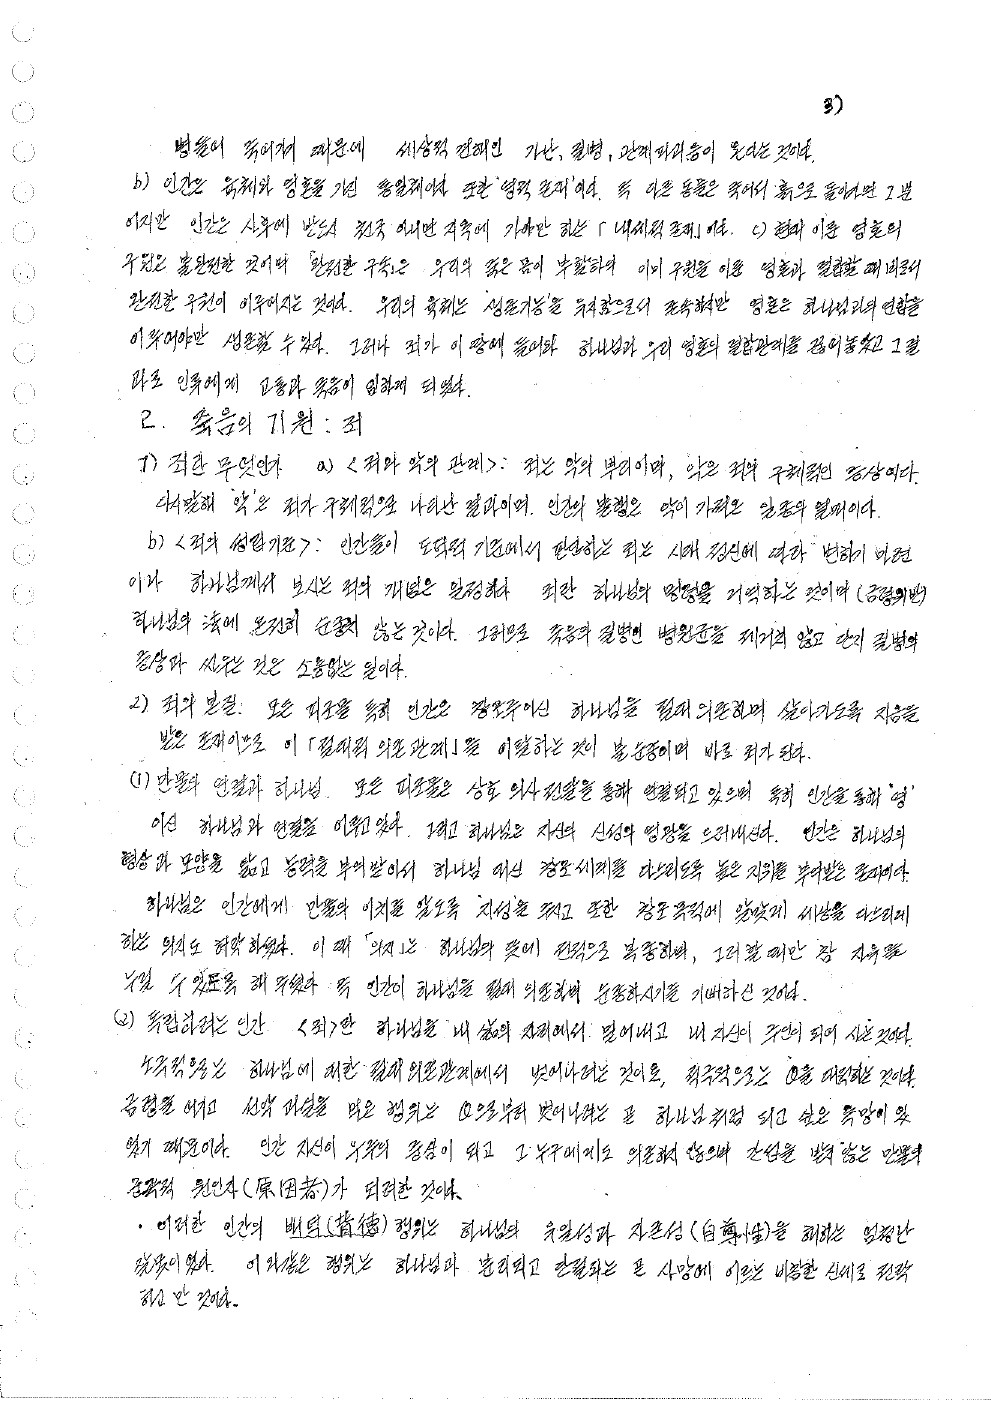 3)
병들어 죽어가기 때문에 세상적 견해인 가난, 질병, 관계파괴등이 오는 것이다.
b) 인간은 육체와 영혼을 가진 통일체이다 또한 '영적 존재'이다. 즉 다른 동물은 죽어서 흙으로 돌아가면 그뿐
이지만 인간은 사후에 반드시 천국 아니면 지옥에 가야만 하는 「내세적 존재」이다. c) 현재 이룬 영혼의
구원은 불완전한 것이며 「완전한 구속」은 우리의 죽은 몸이 부활하여 이미 구원을 이룬 영혼과 결합할 때 비로서
완전한 구원이 이루어지는 것이다. 우리의 육체는 '생존기능'을 유지함으로서 존속하지만 영혼은 하나님과의 연합을
이루어야만 생존할 수 있다. 그러나 죄가 이 땅에 들어와 하나님과 우리 영혼의 결합관계를 끊어놓았고 그 결
과로 인류에게 고통과 죽음이 임하게 되었다.
2. 죽음의 기원 : 죄
1) 죄란 무엇인가 a) <죄와 악의 관계>: 죄는 악의 뿌리이며, 악은 죄의 구체적인 증상이다.
다시말해 '악'은 죄가 구체적으로 나타난 결과이며. 인간의 불행은 악이 가져온 일종의 열매이다.
b) <죄의 성립기준>: 인간들이 도덕적 기준에서 판단하는 죄는 시대 정신에 따라 변하기 마련
이나 하나님께서 보시는 죄의 개념은 일정하다 죄란 하나님의 명령을 거역하는 것이며 (금령위반)
하나님의 法에 온전히 순종치 않는 것이다. 그러므로 죽음의 질병인 병원균을 제거치 않고 단지 질병의
증상과 싸우는 것은 소용없는 일이다.
2) 죄의 본질: 모든 피조물 특히 인간은 창조주이신 하나님을 절대 의존하며 살아가도록 지음을
받은 존재이므로 이 「절대적 의존관계」를 이탈하는 것이 불순종이며 바로 죄가 된다.
(1) 만물의 연결과 하나님. 모든 피조물은 상호 의사전달을 통해 연결되고 있으며 특히 인간을 통해 '영'
이신 하나님과 연결을 이루고 있다. 그리고 하나님은 자신의 신성의 영광을 드러내신다. 인간은 하나님의
형상과 모양을 닮고 능력을 부여받아서 하나님 대신 창조세계를 다스리도록 높은 지위를 부여받은 존재이다.
하나님은 인간에게 만물의 이치를 알도록 '지성'을 주시고 또한 창조 목적에 알맞게 세상을 다스리게
하는 의지도 허락하셨다. 이 때 「의지」는 하나님의 뜻에 전적으로 복종하며, 그러할 때만 참 자유를
누릴 수 있도록 해 두셨다 즉 인간이 하나님을 절대 의존하며 순종하시기를 기뻐하신 것이다.
(2) 독립하려는 인간 <죄>란 하나님을 내 삶의 자리에서 밀어내고 내 자신이 주인이 되어 사는 것이다.
소극적으로는 하나님에 대한 절대의존관계에서 벗어나려는 것이요, 적극적으로는 을 대적하는 것이다.
금령을 어기고 선악과실을 먹은 행위는 으로부터 벗어나려는 또 하나님처럼 되고 싶은 욕망이 있
었기 때문이다. 인간 자신이 우주의 중심이 되고 그 누구에게도 의존하지 않으며 간섭을 받지 않는 만물의
궁극적 원인자(原因者)가 되려한 것이다.
· 이러한 인간의 배덕(背德)행위는 하나님의 유일성과 자존성(自尊性)을 해하는 엄청난
잘못이었다. 이와같은 행위는 하나님과 분리되고 단절되는 또 사망에 이르는 비참한 신세로 전락
하고 만 것이다.